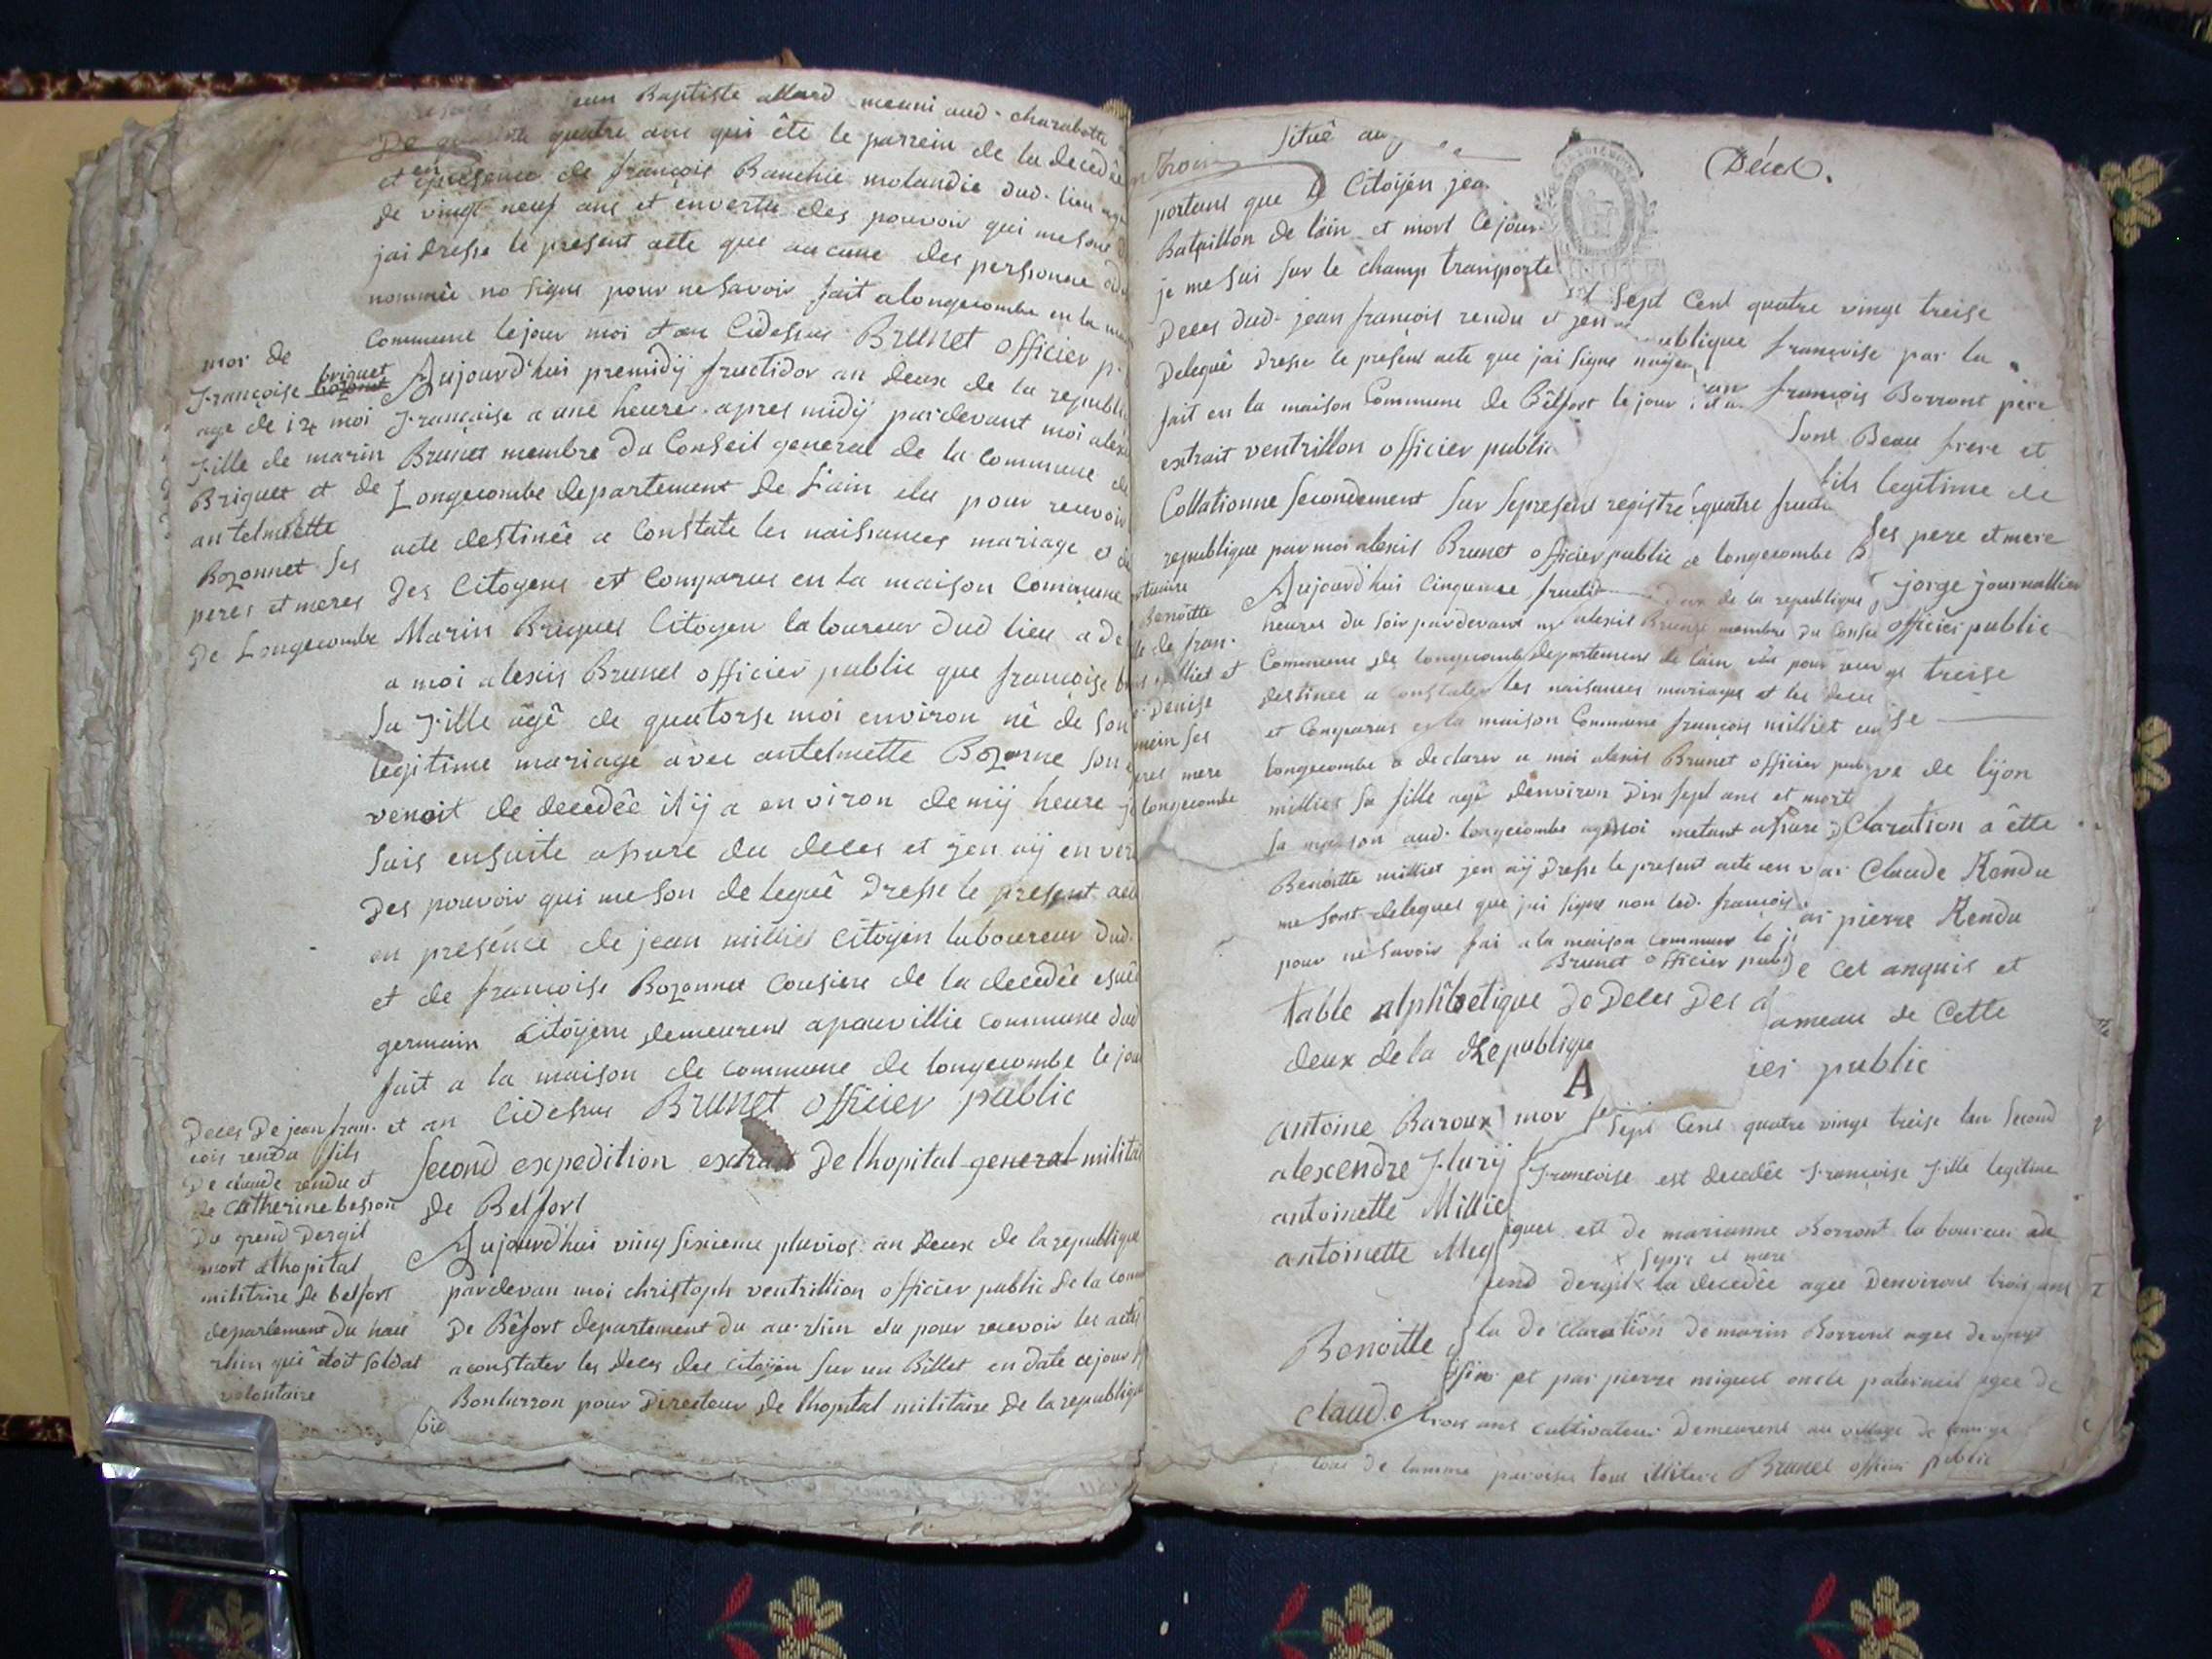 jean Baptiste allard meuni aud. charabotte
quatre ans qui ête le parrein de la decedêe
et en presence de françois Banchie molandie dud. lieu
de vingt neuf ans et envertu des pouvoir qui me sont
jai dresse le present acte que aucune des personnes
nommée no signe pour ne savoir fait a longecombe en la
commune le jour moi et an cidessus Brunet officier p
mor de
françoise briquet bozonet
age de 14 moi
fille de marin
Briquet et de
antelmette
Bozonnet ses
peres et meres
de Longecombe
Aujourd'hui premidij fructidor an deux de la republi
francaise a une heure apres midij pardevant moi alexi
Brunet membre du Conseil general de la commune de
Longecombe departement de Lain elu pour recevoir
acte destinêe a constate les naissances mariage et
des Citoyens est comparus en la maison commune
Marin Briquet Citoyen laboureur dud lieu a de
a moi alexis Brunet officier public que françoise
sa fille âgê de quatorse moi environ nê de son
legitime mariage avec antelmette Bozone son
venoit de decedêe il ÿ a environ demij heure je
suis ensuite assure du deces et jen aÿ en ver
des pouvoir qui me son delequê dresse le present acte
en presence de jean milliet citoÿen laboureur dud.
et de francoise Bozonnet cousiene de la decedêe
germain citoÿene demeurent apauvillie commune dud
fait a la maison de commune de longecombe le jou
et an cidessus Brunet officier public
Deces De jean fran.
cois rendu fils
De claude rendu et
de Catherine besson
du grend Dergit
mort a lhopital
militrire de belfort
departement du hau
rhin qui êtoit soldat
volontaire
Second expedition extrait De lhopital general milita
de Belfort
Aujourd'hui ving sixieme pluvios: an deux de la republique
pardevan moi christoph ventrillion officier public de la com
De Bêfort departement du au. rhin elu pour recevoir les actes
a constater les deces des citoÿen sur un Billet en date ce jour
Bonturron pour Directeur de lhopital militaire de la republique
situê au
portant que le Citoÿen jea
Bataillon de lain et mort ce jour
je me suis sur le champ transporte
Deces dud. jean françois rendu et jen
Delequê dresse le present acte que jai signe
fait en la maison Commune de Bêlfort le jour
extrait ventrillon officier public
Collationne secondement sur le present registre quatre fruct
republique par moi alexis Brunet officier public a longecombe
Benoitte
de fran.
milliet et
Denise
mein ses
peres mere
longecombe
Aujourd'hui cinquieme fructid deux de la republique
heures du soir pardevant alexis Brunet membre du conse
Commune de longecombe departement de lain elu pour
destinee a constater les naisances mariages et les deces
et comparus en la maison commune françois milliet
longecombe a declarer a moi alexis Brunet officier pub
milliet sa fille agê denviron dix sept ans et morte
sa maison aud. longecombe metant assure
Benoitte milliet jen aÿ dresse le present acte en
me sont deleques que jai signe non led. francois
pour ne savoir fai a la maison commune le
Brunet officier publ
table alphâbetique de Deces Des
deux de la Republique
A
antoine Baroux mor
alexendre Flurij
antoinette Millie
antoinette Meg
Benoitte
claude
Décès.
sept Cent quatre vingt treise
republique françoise par la
françois Borront père
sont Beau frere et
fils legitime de
ses pere et mere
jorge journallier
officier public
treise
se
de lijon
claration a êtte
Claude Rendu
pierre Rendu
de cet anquis et
ameau de Cette
ier public
sept Cent quatre vingt treise lan second
francoise est decedée francoise fille legitime
guel est de marianne Borront la boureur
x sepse et mere
end dergit x la decedée agee denviront trois ans
la de claration de marin Borront agee de vingt
et par pierre miguet oncle paternel agee de
trois ans cultivateur demeurent au village de
tous illitere Brunet officier public